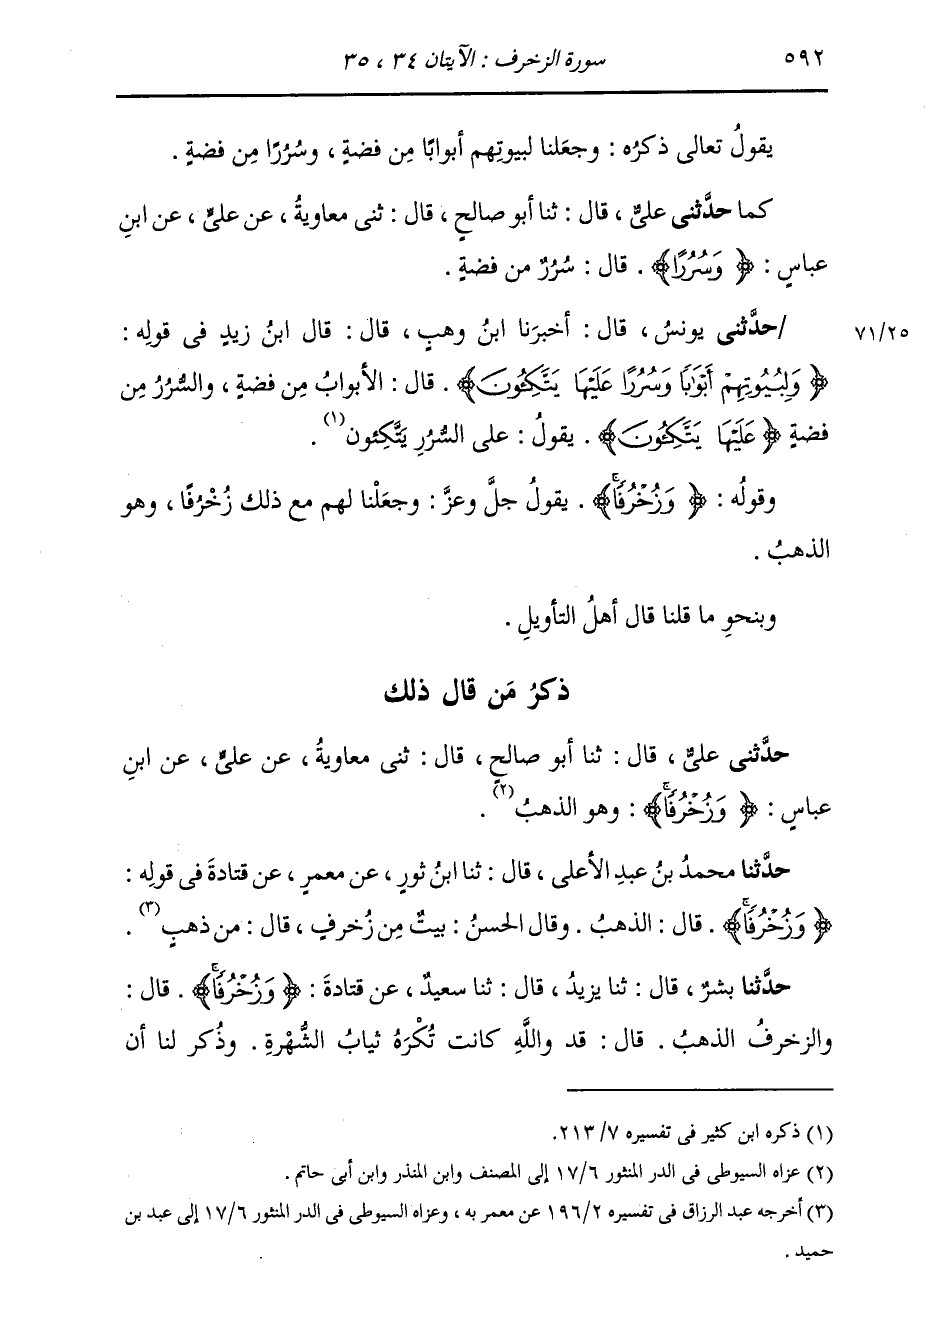 ٥٩٢
سورة الزخرف : الآيتان ٣٤ ، ٣٥
يقولُ تعالى ذكرُه : وجعَلنا لبيوتِهم أبوابًا مِن فضةٍ ، وسُرُرًا مِن فضةٍ .
كما حدَّثنى علىٌّ ، قال : ثنا أبو صالحٍ ، قال : ثنى معاويةُ ، عن علىٍّ ، عن ابنِ
عباسٍ : ﴿ وَسُرُرًا ﴾ . قال : سُرُرٌ من فضةٍ .
٧١/٢٥
/حدَّثنى يونسُ ، قال : أخبرَنا ابنُ وهبٍ ، قال : قال ابنُ زيدٍ فى قولِه :
﴿ وَلِبُيُوتِهِمْ أَبْوَٰبًا وَسُرُرًا عَلَيْهَا يَتَّكِـُٔونَ ﴾ . قال : الأبوابُ مِن فضةٍ ، والسُّرُرُ مِن
فضةٍ ﴿ عَلَيْهَا يَتَّكِـُٔونَ ﴾ . يقولُ : على السُّرُرِ يَتَّكِئون(١) .
وقولُه : ﴿ وَزُخْرُفًاۚ ﴾ . يقولُ جلَّ وعزَّ : وجعَلْنا لهم مع ذلك زُخْرُفًا ، وهو
الذهبُ .
وبنحوِ ما قلنا قال أهلُ التأويلِ .
ذكرُ مَن قال ذلك
حدَّثنى علىٌّ ، قال : ثنا أبو صالحٍ ، قال : ثنى معاويةُ ، عن علىٍّ ، عن ابنِ
عباسٍ : ﴿ وَزُخْرُفًاۚ ﴾ : وهو الذهبُ(٢) .
حدَّثنا محمدُ بنُ عبدِ الأعلى ، قال : ثنا ابنُ ثورٍ ، عن معمرٍ ، عن قتادةَ فى قولِه :
﴿ وَزُخْرُفًاۚ ﴾ . قال : الذهبُ . وقال الحسنُ : بيتٌ مِن زُخرفٍ ، قال : من ذهبٍ(٣) .
حدَّثنا بشرٌ ، قال : ثنا يزيدُ ، قال : ثنا سعيدٌ ، عن قتادةَ : ﴿ وَزُخْرُفًاۚ ﴾ . قال :
والزخرفُ الذهبُ . قال : قد واللَّهِ كانت تُكْرَهُ ثيابُ الشُّهْرةِ . وذُكر لنا أن
(١) ذكره ابن كثير فى تفسيره ٧/ ٢١٣.
(٢) عزاه السيوطى فى الدر المنثور ١٧/٦ إلى المصنف وابن المنذر وابن أبى حاتم .
(٣) أخرجه عبد الرزاق فى تفسيره ١٩٦/٢ عن معمر به ، وعزاه السيوطى فى الدر المنثور ١٧/٦ إلى عبد بن
حميد .